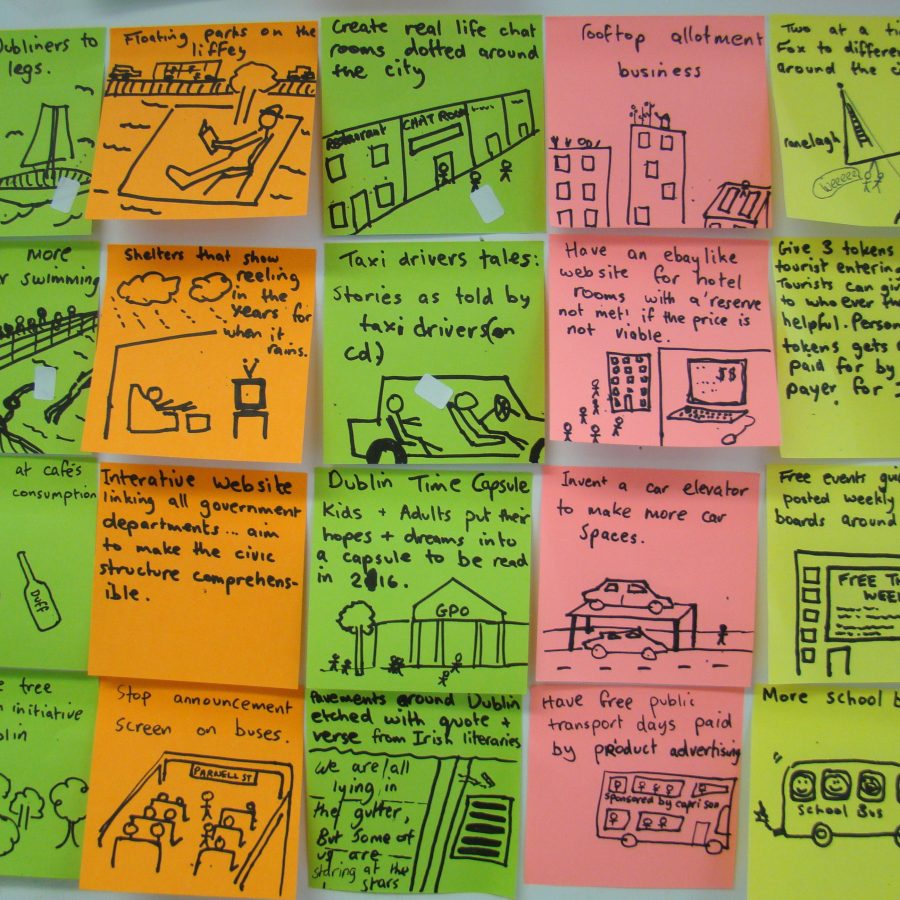 Dubliners to
legs.
Floating parks on the
liffey
Create real life chat
rooms dotted around
the city
Restaurant
CHAT ROOM
rooftop allotment
business
Two at a
Fox to
around the
ranelagh
weeeee
more
swimming
Shelters that show
reeling
in the
years for
when it
rains.
Taxi drivers tales:
Stories as told by
taxi drivers (on
cd)
Have an ebay like
website for hotel
rooms with a 'reserve
not met' if the price is
not viable.
$$
Give 3 tokens
tourist entering
Tourists can
to who ever
helpful. Person
tokens gets
paid for by
payer for
at café's
consumption
Duff
Interative website
linking all government
departments... aim
to make the civic
structure comprehens-
ible.
Dublin Time Capsule
Kids + Adults put their
hopes + dreams into
a capsule to be read
in 2016.
GPO
Invent a car elevator
to make more car
Spaces.
Free events
posted weekly
boards around
FREE
WEEK
free
initiative
Stop announcement
screen on buses.
PARNELL ST
Pavements around Dublin
etched with quote +
verse from Irish literaries
We are all
lying in
the gutter,
But some of
us are
staring at the
stars
Have free public
transport days paid
by product advertising
sponsored by capri son
More school
School Bus